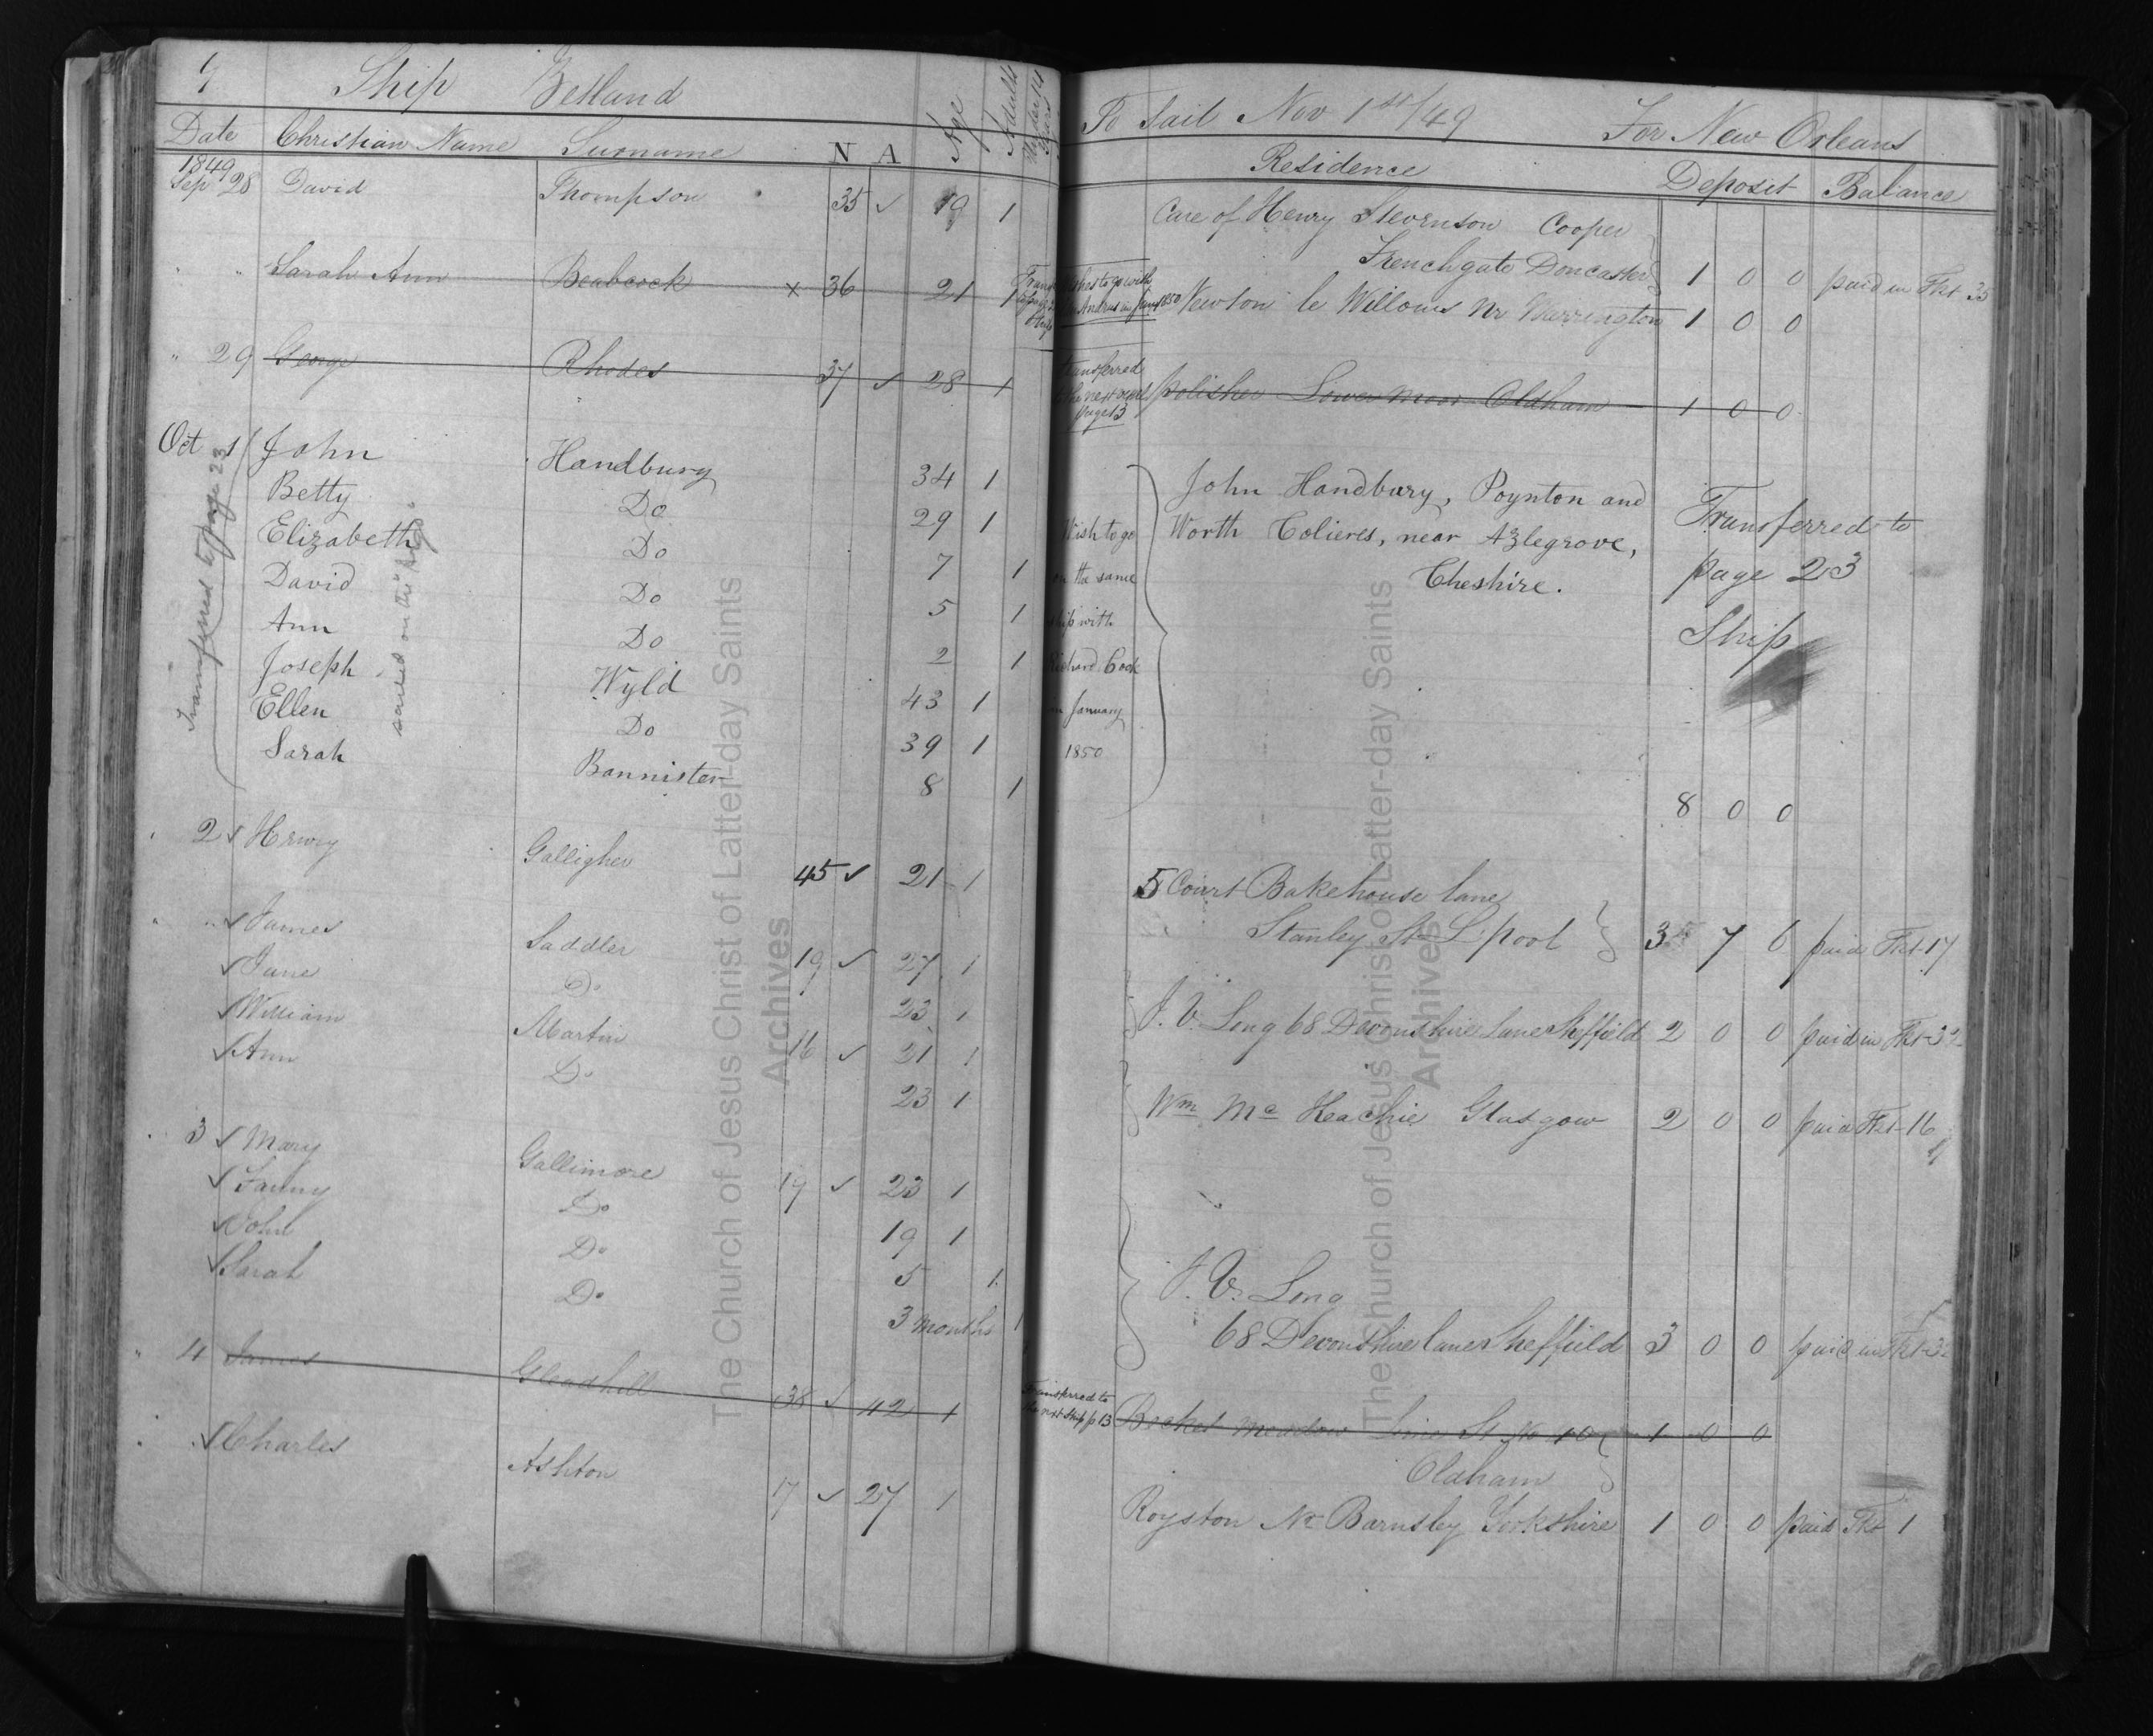 9 Ship Zetland
Date Christian Name Surname N A Age Adults
1849
Sep 28 David Thompson 35 ✓ 19 1
" " Sarah Ann Beabcock x 36 21 1
" 29 George Rhodes 37 ✓ 28 1
Oct 1 John Handbury 34 1
Betty Do 29 1
Elizabeth Do 7 1
David Do 5 1
Ann Do 2 1
Joseph Wyld 43 1
Ellen Do 39 1
Sarah Bannister 8 1
Transferred to page 23
sailed on the "Argo"
2 ✓ Henry Galligher 45 ✓ 21 1
" ✓ James Saddler 19 ✓ 27 1
✓ Jane Do 23 1
✓ William Martin 16 ✓ 21 1
✓ Ann Do 23 1
3 ✓ Mary Gallimore 19 ✓ 23 1
✓ Fanny Do 19 1
✓ John Do 5 1
✓ Sarah Do 3 months 1
" 4 James Gleadhill 38 ✓ 42 1
✓ Charles Ashton 17 ✓ 27 1
To Sail Nov 1st/49 For New Orleans
Residence Deposit Balance
Care of Henry Stevenson Cooper
Frenchgate Doncaster 1 0 0 paid in Tkt 35
Newton le Willows Nr Warrington 1 0 0
transferred
page 13
polisher Lower moor Oldham 1 0 0
Wish to go
on the same
ship with
Richard Cook
in January
1850
John Handbury, Poynton and
Worth Colieres, near Azlegrove,
Cheshire.
Transferred to
page 23
Ship
8 0 0
5 Court Bakehouse lane
Stanley St L'pool 3 7 6 paid Tkt 17
J. V. Long 68 Devonshire Lane Sheffield 2 0 0 paid in Tkt 32
Wm Mc Keachie Glasgow 2 0 0 paid Tkt 16
J. V. Long
68 Devonshire lane Sheffield 3 0 0 paid in Tkt 32
Transferred to
the next Ship p 13
Becket Meadow St No 10 1 0 0
Oldham
Royston Nr Barnsley Yorkshire 1 0 0 paid Tkt 1
The Church of Jesus Christ of Latter-day Saints
Archives
The Church of Jesus Christ of Latter-day Saints
Archives